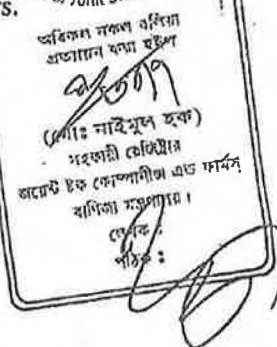 অবিকল নকল বলিয়া
প্রত্যায়ন করা হইল
(মোঃ নাইমুল হক)
সহকারী রেজিস্ট্রার
জয়েন্ট স্টক কোম্পানীজ এন্ড ফার্মস
বাণিজ্য মন্ত্রণালয়।
লেখক :
পাঠক :